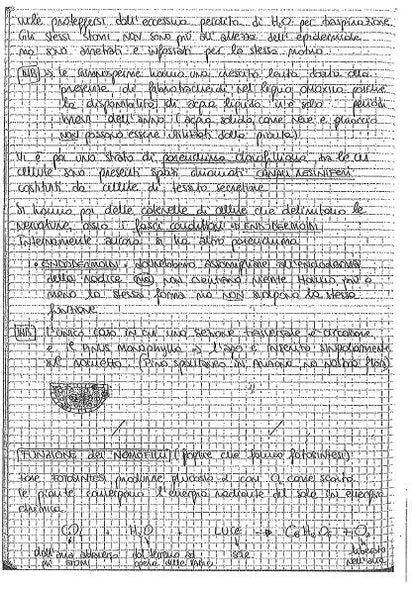 vuole proteggersi dall'eccessiva perdita di H₂O per traspirazione.
Gli stessi stomi NON sono più all'altezza dell'epidermide
ma sono arretrati e infossati per lo stesso motivo.
NB → le Gimnosperme hanno una crescita lenta dovuta alla
presenza di fibrotracheidi nel legno omoxilo perché
la disponibilità di acqua liquida vi è solo periodi
brevi dell'anno (acqua solida come neve e ghiaccio
NON possono essere utilizzati dalla pianta)
Vi è poi uno strato di parenchima clorofilliano, tra le cui
cellule sono presenti spazi chiamati CANALI RESINIFERI
costituiti da cellule di tessuto secretore.
Si hanno poi delle cellule che delimitano le
nervature, ossia i fasci conduttori → ENDODERMOIDI
Internamente ancora si ha altro parenchima
• ENDODERMOIDI: dovrebbero assomigliare all'endoderma
della radice NB NON c'entrano niente. Hanno più o
meno la stessa forma ma NON svolgono la stessa
funzione.
NB L'unico caso in cui una sezione trasversale è circolare
è il Pinus monophylla → l'ago è inserito singolarmente
sul rametto. (Pino spontaneo in America, no nostra flora)
FUNZIONE dei NOMOFILLI (foglie che fanno fotosintesi)
FOTOSINTESI produrre glucosio e con O₂ come scarto.
le piante convergono l'energia radiante del sole in energia
chimica.
CO₂ + H₂O + LUCE → C₆H₁₂O₆ + O₂
dall'aria attraverso dal terreno ad sole liberato
gli stomi opera delle radici nell'aria